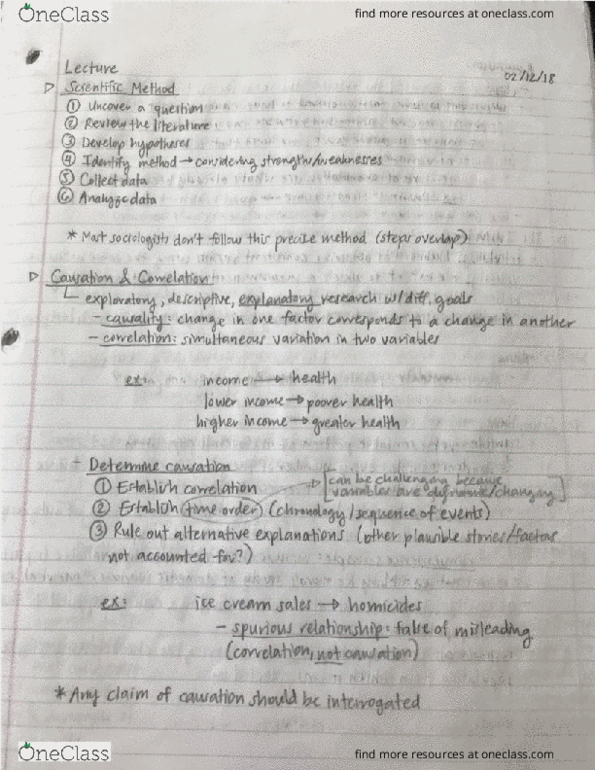 OneClass
find more resources at oneclass.com
Lecture
02/12/18
Scientific Method
① Uncover a question
② Review the literature
③ Develop hypotheses
④ Identify method → considering strengths/weaknesses
⑤ Collect data
⑥ Analyze data
* Most sociologists don't follow this precise method (steps overlap)
Causation & Correlation
exploratory, descriptive, explanatory research w/ diff. goals
- causality: change in one factor corresponds to a change in another
- correlation: simultaneous variation in two variables
ex: income → health
lower income → poorer health
higher income → greater health
- Determine causation
① Establish correlation
[can be challenging because
variables are dynamic/changing]
② Establish time order (chronology/sequence of events)
③ Rule out alternative explanations (other plausible stories/factors
not accounted for?)
ex: ice cream sales → homicides
- spurious relationship: false of misleading
(correlation, not causation)
* Any claim of causation should be interrogated
OneClass
find more resources at oneclass.com